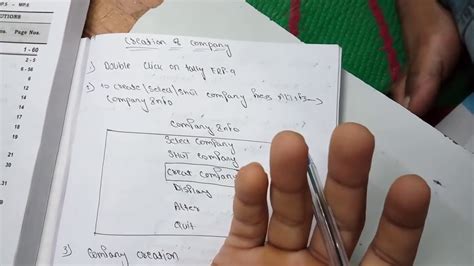 UTIONS
os. Page Nos.
1 - 60
2 - 5
6 -
8
12
19
21
31
30
14
16
Creation of Company
1) Double click on tally ERP.9
2) To create/select/shut company press Alt+F3→
Company Info
Company Info
Select Company
Shut Company
Creat Company
Display
Alter
Quit
3) Company creation